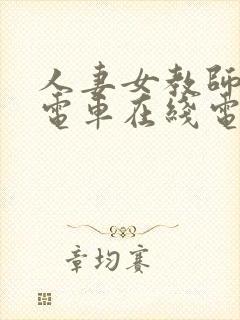 人妻女教師
電車在綫電
章均賽